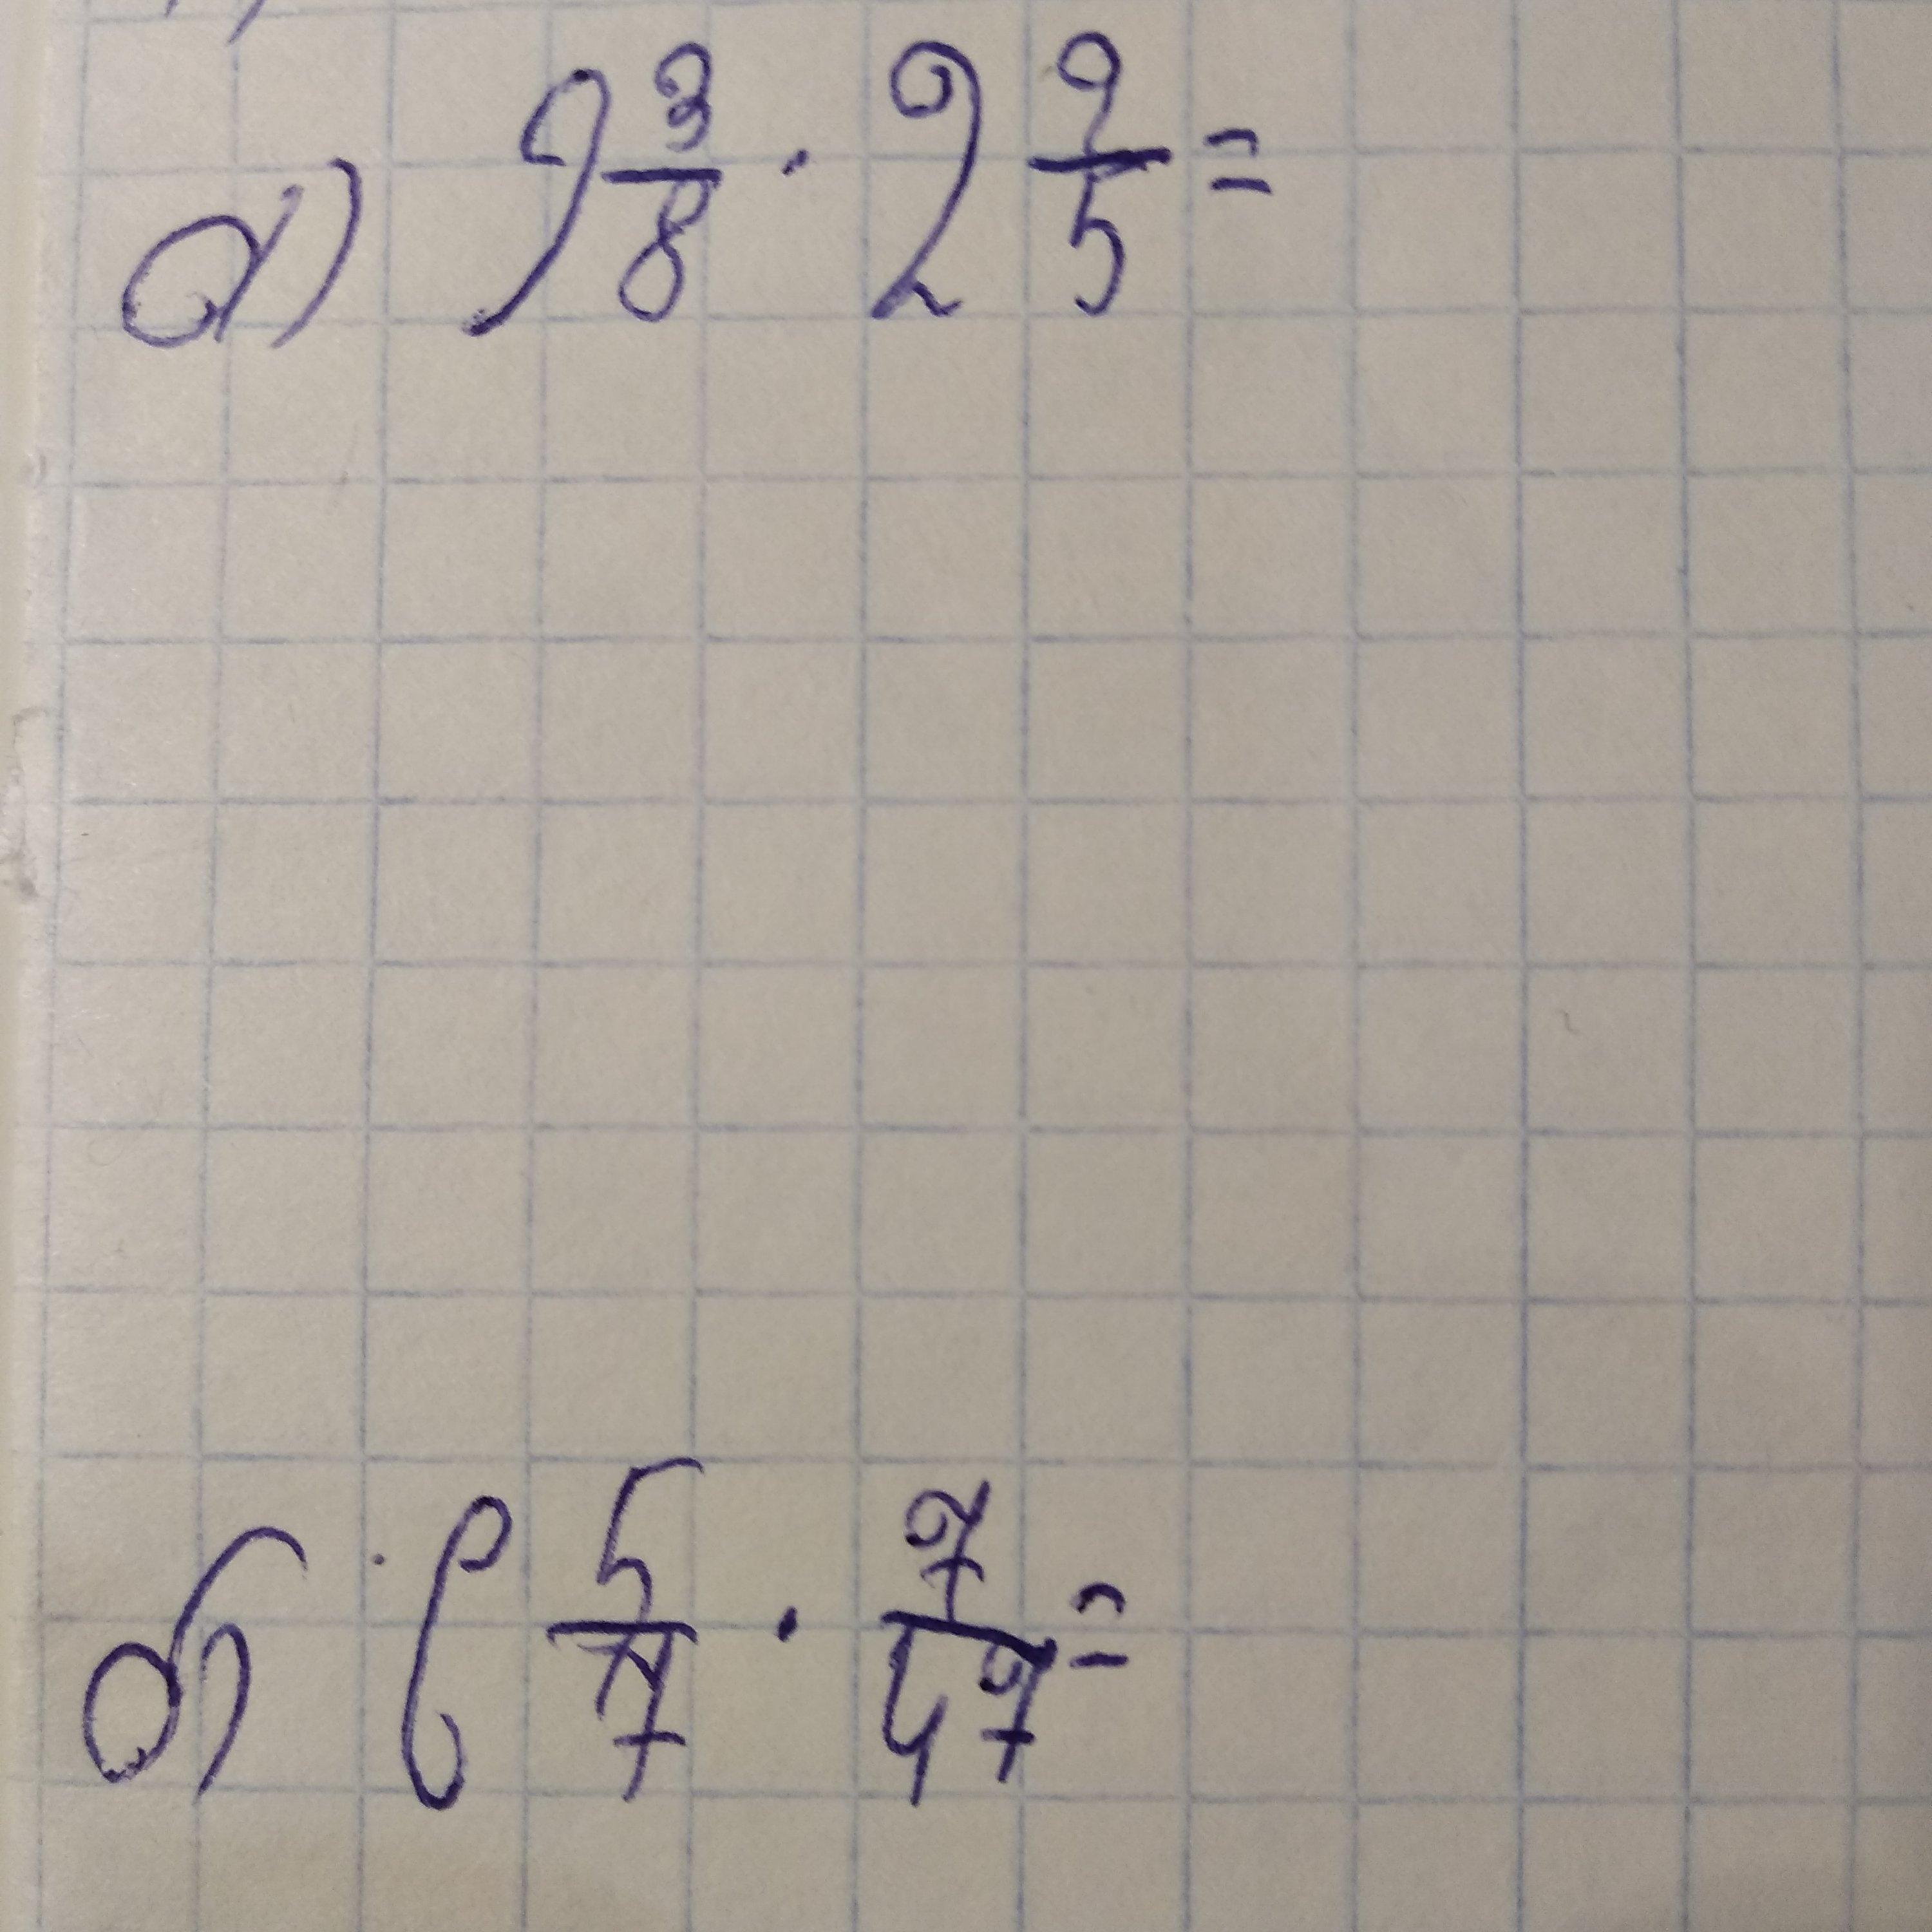 а) 9 3/8 · 2 2/5 =
б) 6 5/7 · 7/47 =